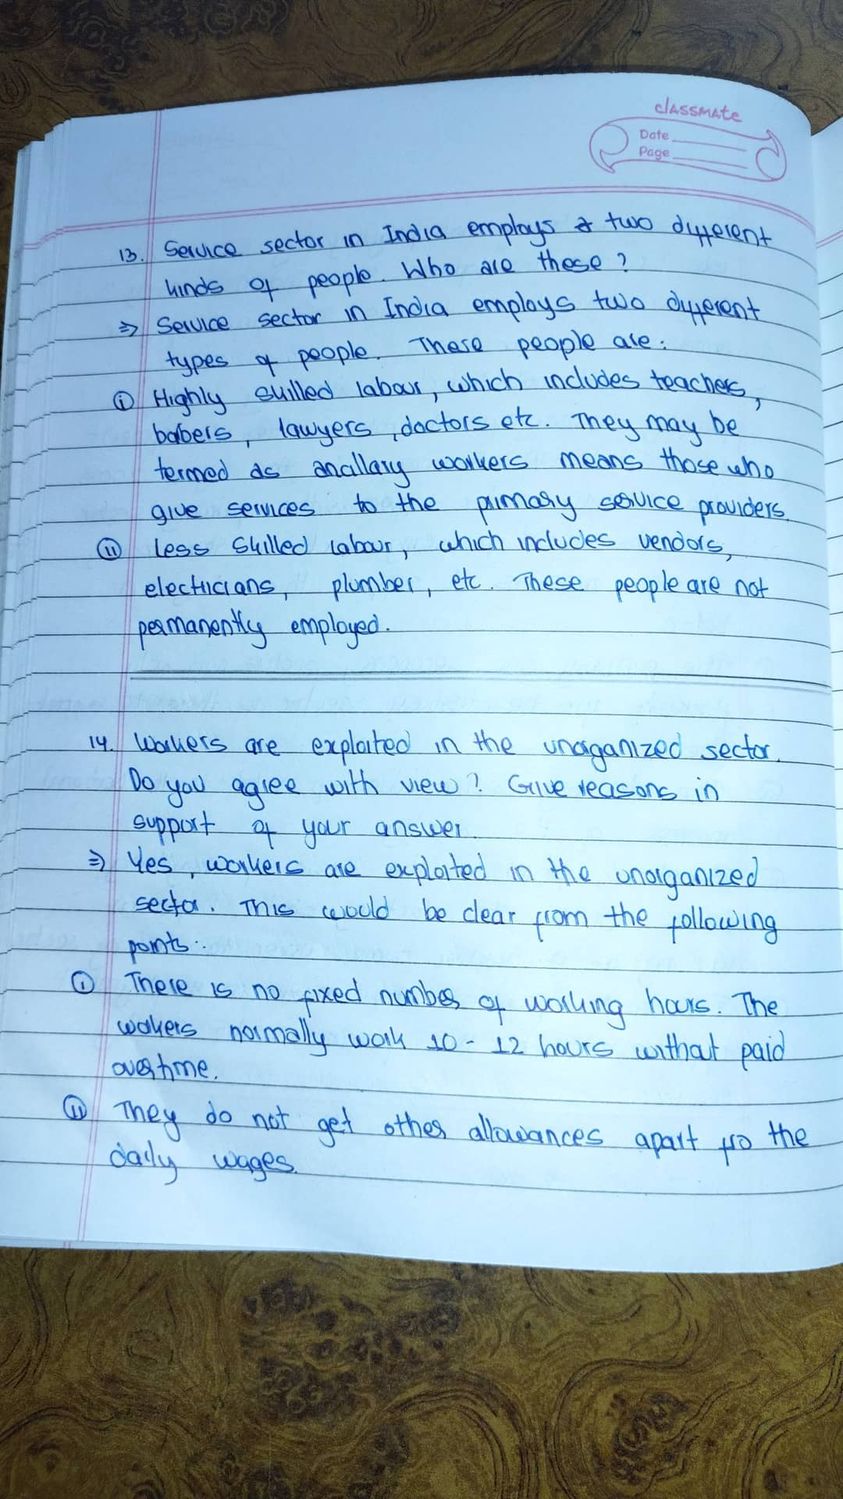 classmate
Date
Page
13. Service sector in India employs two different
kinds of people. Who are these?
⇒ Service sector in India employs two different
types of people. These people are:
(i) Highly skilled labour, which includes teachers,
babers, lawyers, doctors etc. They may be
termed as anallary workers means those who
give services to the primary service providers.
(ii) less skilled labour, which includes vendors,
electricians, plumber, etc. These people are not
permanently employed.
14. Workers are exploited in the unorganized sector.
Do you agree with view? Give reasons in
support of your answer.
⇒ Yes, workers are exploited in the unorganized
sector. This would be clear from the following
points:
(i) There is no fixed number of working hours. The
wokers normally work 10-12 hours without paid
overtime.
(ii) They do not get other allowances apart fro the
daily wages.